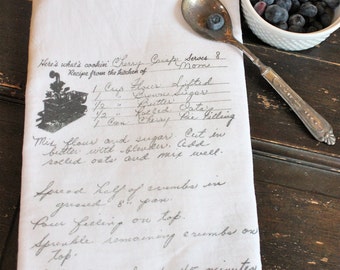 Here's what's cookin' Cherry Crisp Serves 8
Recipe from the kitchen of Mom
1 Cup Flour Sifted
1 " Brown Sugar
1/2 " Butter
1/2 " Rolled Oats
1 Can Cherry Pie Filling
Mix flour and sugar Cut in
butter with blender. Add
rolled oats and mix well.
Spread half of crumbs in
greased 8" pan
Pour filling on top.
Sprinkle remaining crumbs on
top.
40 minutes